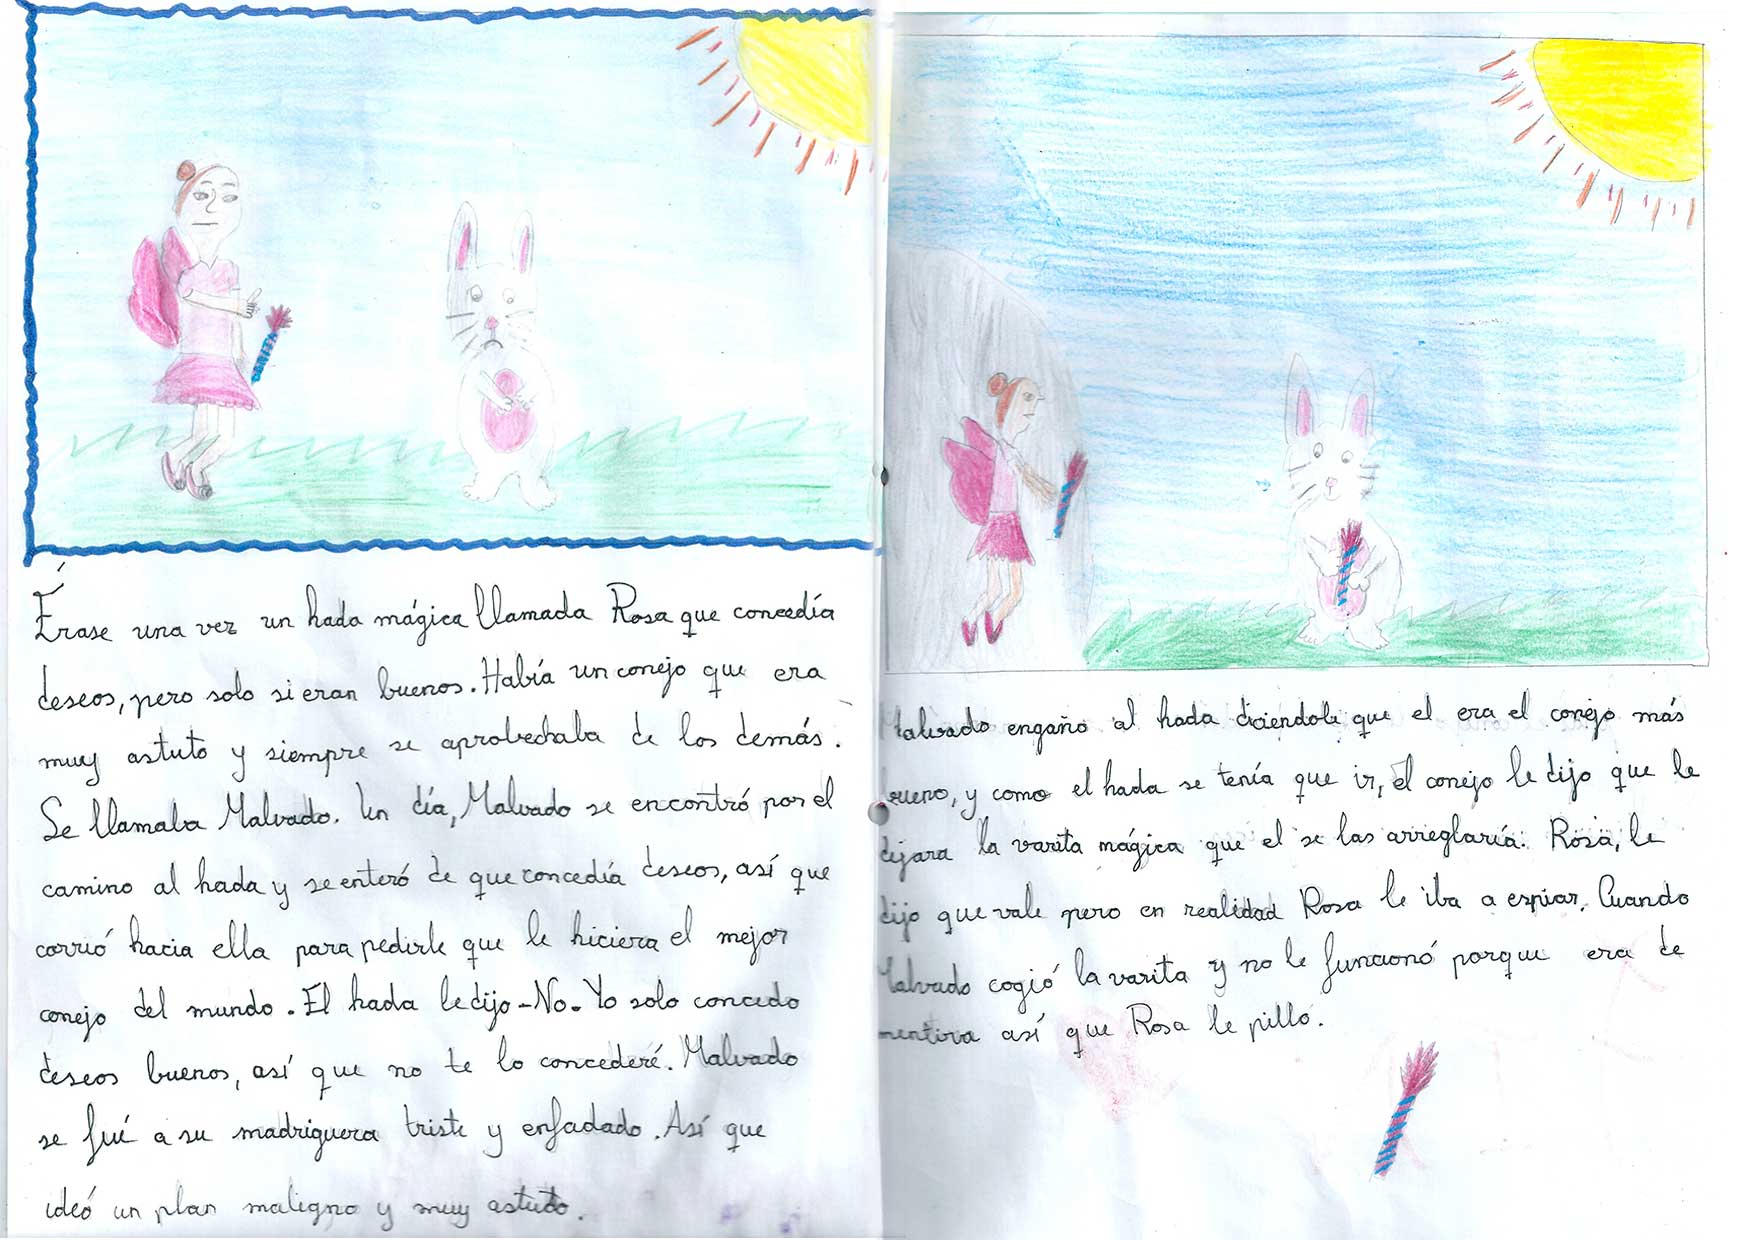 Érase una vez un hada mágica llamada Rosa que concedía
deseos, pero solo si eran buenos. Había un conejo que era
muy astuto y siempre se aprobechaba de los demás.
Se llamaba Malvado. Un día, Malvado se encontró por el
camino al hada y se enteró de que concedía deseos, así que
corrió hacia ella para pedirle que le hiciera el mejor
conejo del mundo. El hada le dijo -No- Yo solo concedo
deseos buenos, así que no te lo concederé. Malvado
se fué a su madriguera triste y enfadado. Así que
ideó un plan maligno y muy astuto.
Malvado engaño al hada diciendole que el era el conejo más
bueno, y como el hada se tenía que ir, el conejo le dijo que le
dejara la varita mágica que el se las arreglaría. Rosa, le
dijo que vale pero en realidad Rosa le iba a espiar. Cuando
Malvado cogió la varita y no le funcionó porque era de
mentira así que Rosa le pilló.